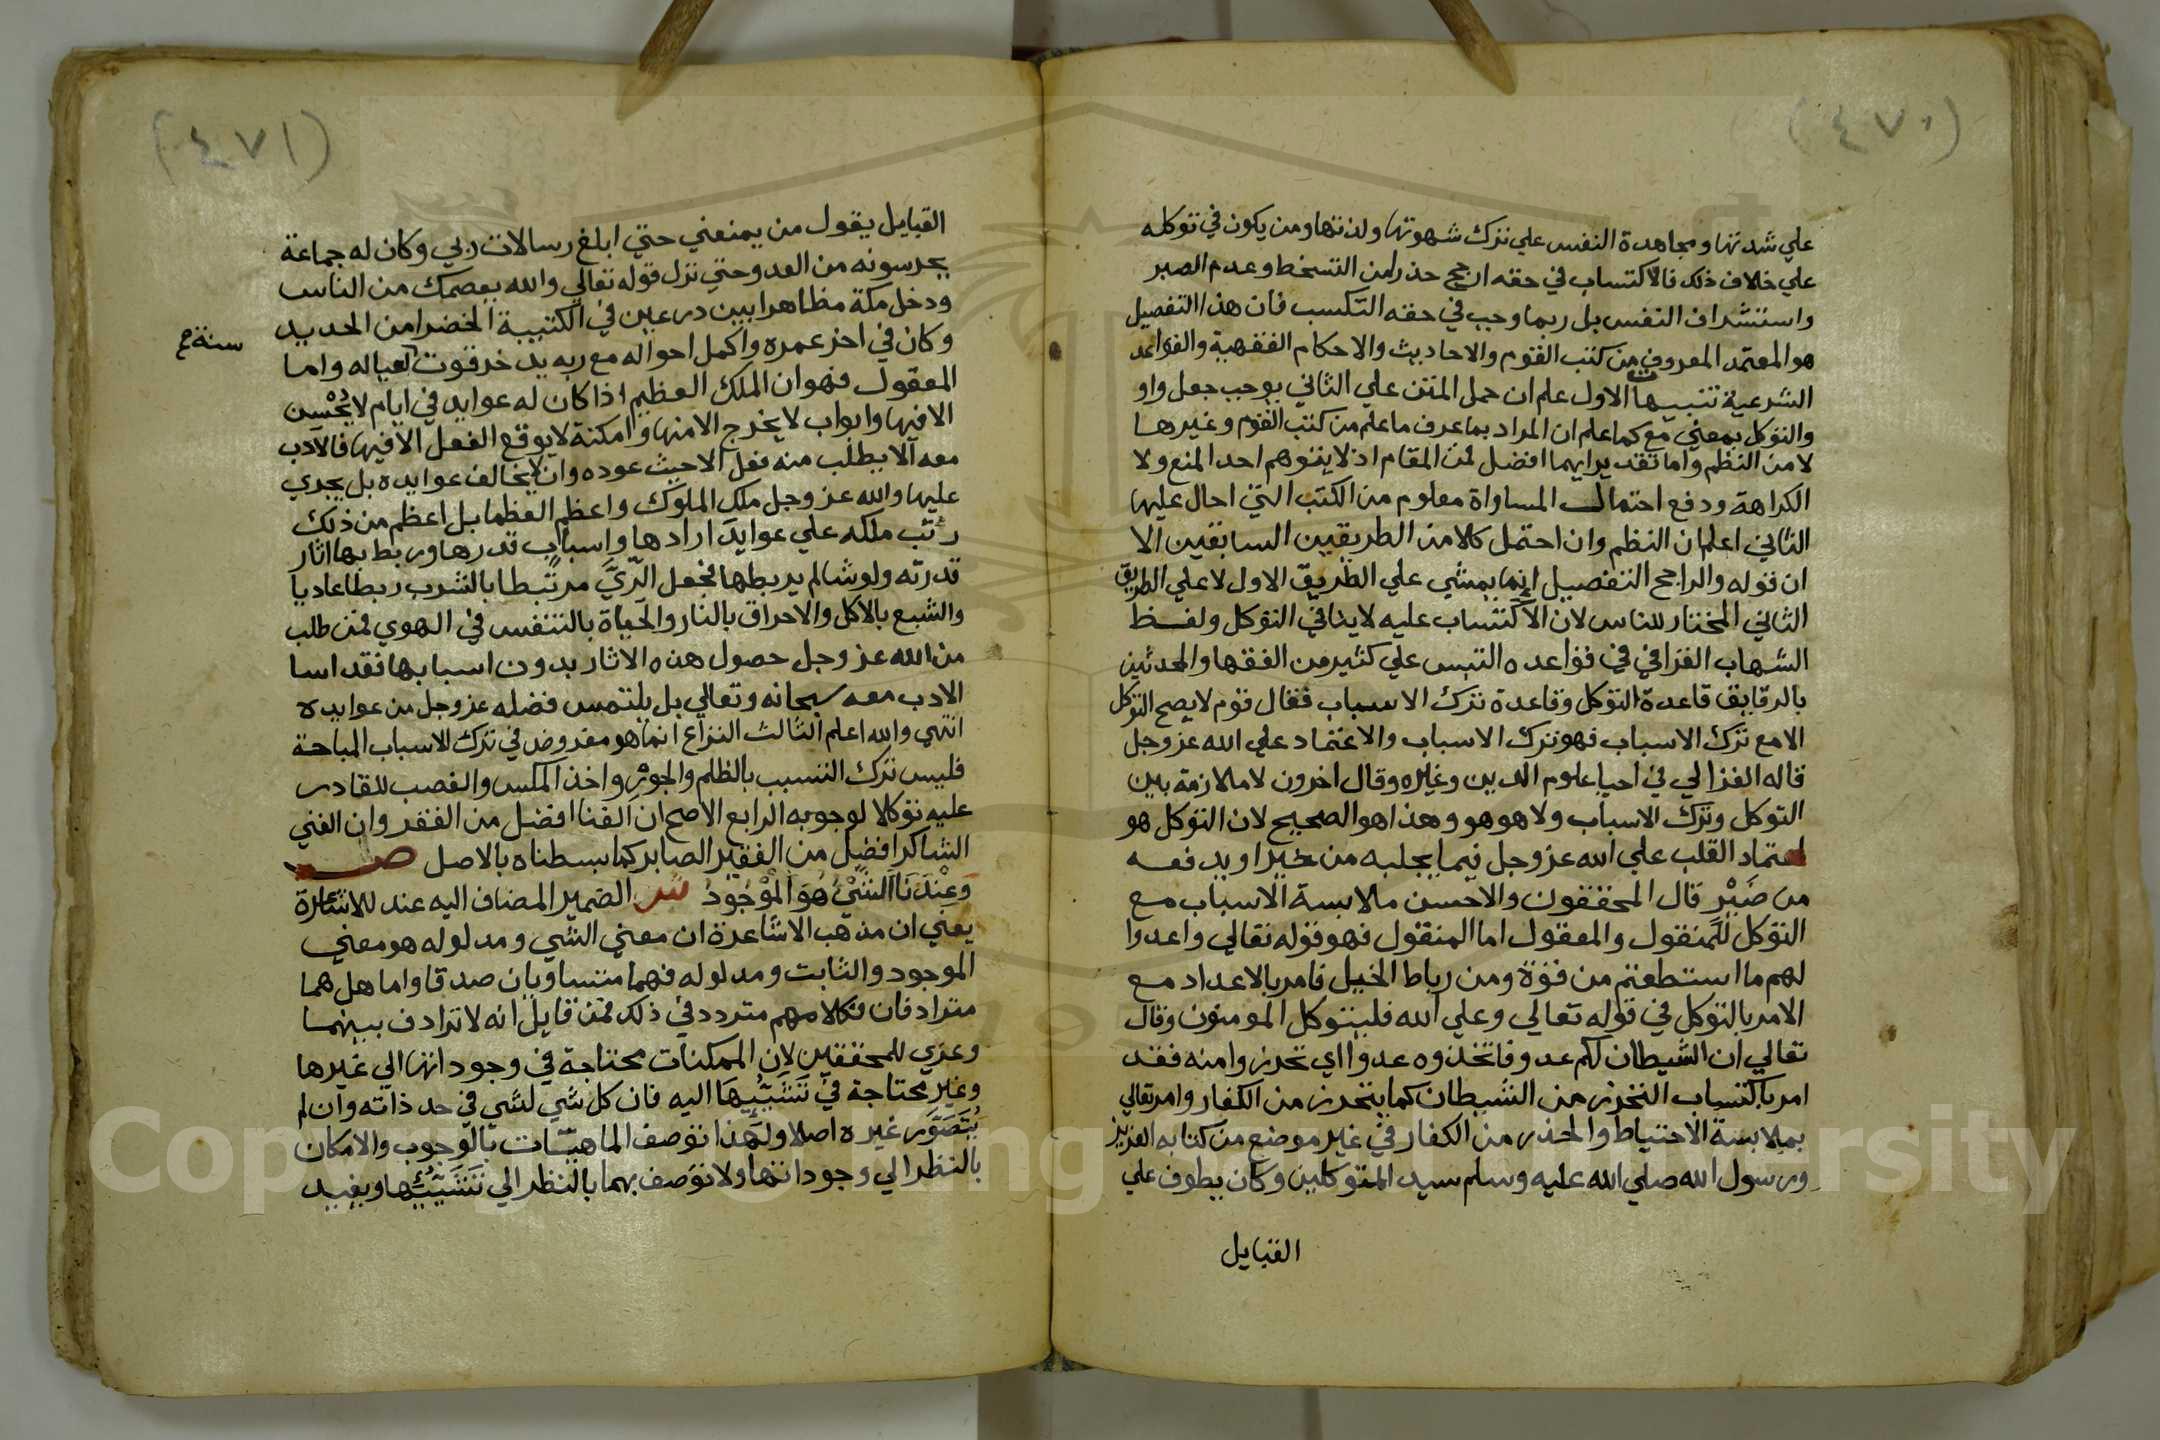 (٤٧٠)
علي شدتها ومجاهدة النفس علي ترك شهوتها ولذتها ومن يكون في توكله
علي خلاف ذلك فالاكتساب في حقه ارجح حذرا من التسخط وعدم الصبر
واستشراف النفس بل ربما وجب في حقه التكسب فان هذا التفصيل
هو المعتمد المعروف من كتب القوم والاحاديث والاحكام الفقهية والقواعد
الشرعية تنبيهات الاول علم ان حمل المتن علي الثاني بوجب جعل واو
والتوكل بمعني مع كما علم ان المراد بما عرف ما علم من كتب القوم وغيرها
لا من النظم واما تقديرايهما افضل لمن المقام اذ لا يتوهم احد المنع ولا
الكراهة ودفع احتمال المساواة معلوم من الكتب التي احال عليها
الثاني اعلم ان النظم وان احتمل كلا من الطريقين السابقين الا
ان قوله والراجح التفصيل انما يمشي علي الطريق الاول لا علي الطريق
الثاني المختار للناس لان الاكتساب عليه لاينافي التوكل ولفظ
الشهاب القرافي في قواعده التبس علي كثير من الفقها والمحدثين
بالرقايق قاعدة التوكل وقاعدة ترك الاسباب فقال قوم لا يصح التوكل
الا مع ترك الاسباب فهو ترك الاسباب والاعتماد علي الله عز وجل
قاله الغزالي في احيا علوم الدين وغيره وقال اخرون لا ملازمة بين
التوكل وترك الاسباب ولا هو هو وهذا هو الصحيح لان التوكل هو
اعتماد القلب علي الله عز وجل فيما يجلبه من خير او يدفعه
من ضير قال المحققون والاحسن ملابسة الاسباب مع
التوكل للمنقول والمعقول اما المنقول فهو قوله تعالي واعدوا
لهم ما استطعتم من قوة ومن رباط الخيل فامر بالاعداد مع
الامر بالتوكل في قوله تعالي وعلي الله فليتوكل المومنون وقال
تعالي ان الشيطان لكم عدو فاتخذوه عدوا اي تحرزوا منه فقد
امر باكتساب التحرز من الشيطان كما يتحرز من الكفار وامر تعالي
بملابسة الاحتياط والحذر من الكفار في غير موضع من كتابه العزيز
ورسول الله صلي الله عليه وسلم سيد المتوكلين وكان يطوف علي
القبايل
(٤٧١)
القبايل يقول من يمنعني حتي ابلغ رسالات ربي وكان له جماعة
يحرسونه من العدو حتي نزل قوله تعالي والله يعصمك من الناس
ودخل مكة مظاهرا بين درعين في الكتيبة الخضرا من الحديد
وكان في اخر عمره واكمل احواله مع ربه يدخر قوت لعياله واما
سنة ع
المعقول فهو ان الملك العظيم اذا كان له عوايد في ايام لا يُحْسِن
الا فيها وابواب لا يخرج الا منها وامكنة لا يوقع الفعل الا فيها فالادب
معه الا يطلب منه فعل الا حيث عوده وان لا يخالف عوايده بل يجري
عليها والله عز وجل ملك الملوك واعظم العظما بل اعظم من ذلك
رتب ملكه علي عوايد ارادها واسباب قدرها وربط بها اثار
قدرته ولو شا لم يربطها فجعل الرّيَّ مرتبطا بالشرب ربطا عاديا
والشبع بالاكل والاحراق بالنار والحياة بالتنفس في الهوي فمن طلب
من الله عز وجل حصول هذه الاثار بدون اسبابها فقد اسا
الادب معه سبحانه وتعالي بل يلتمس فضله عز وجل من عوايده
انتهي والله اعلم الثالث النزاع انما هو مفروض في ترك الاسباب المباحة
فليس ترك التسبب بالظلم والجور واخذ المكس والغصب للقادر
عليه توكلا لوجوبه الرابع الاصح ان الغنا افضل من الفقر وان الغني
الشاكر افضل من الفقير الصابر كما بسطناه بالاصل ص
وَعِنْدَنَا الشَّيْءُ هُوَ الْمَوْجُودُ ش الضمير المضاف اليه عند للاشاعرة
يعني ان مذهب الاشاعرة ان معني الشي ومدلوله هو معني
الموجود والثابت ومدلوله فهما متساويان صدقا واما هل هما
مترادفان فكلامهم متردد في ذلك فمن قايل انه لا ترادف بينهما
وعزي للمحققين لان الممكنات محتاجة في وجوداتها الي غيرها
وغير محتاجة في تَشَيُّئِهَا اليه فان كل شي لشي في حد ذاته وان لم
يُتَصَوَّر غيره اصلا ولهذا توصف الماهيّات بالوجوب والامكان
بالنظر الي وجوداتها ولا توصف بهما بالنظر الي تَشَيُّئِها ويفيد